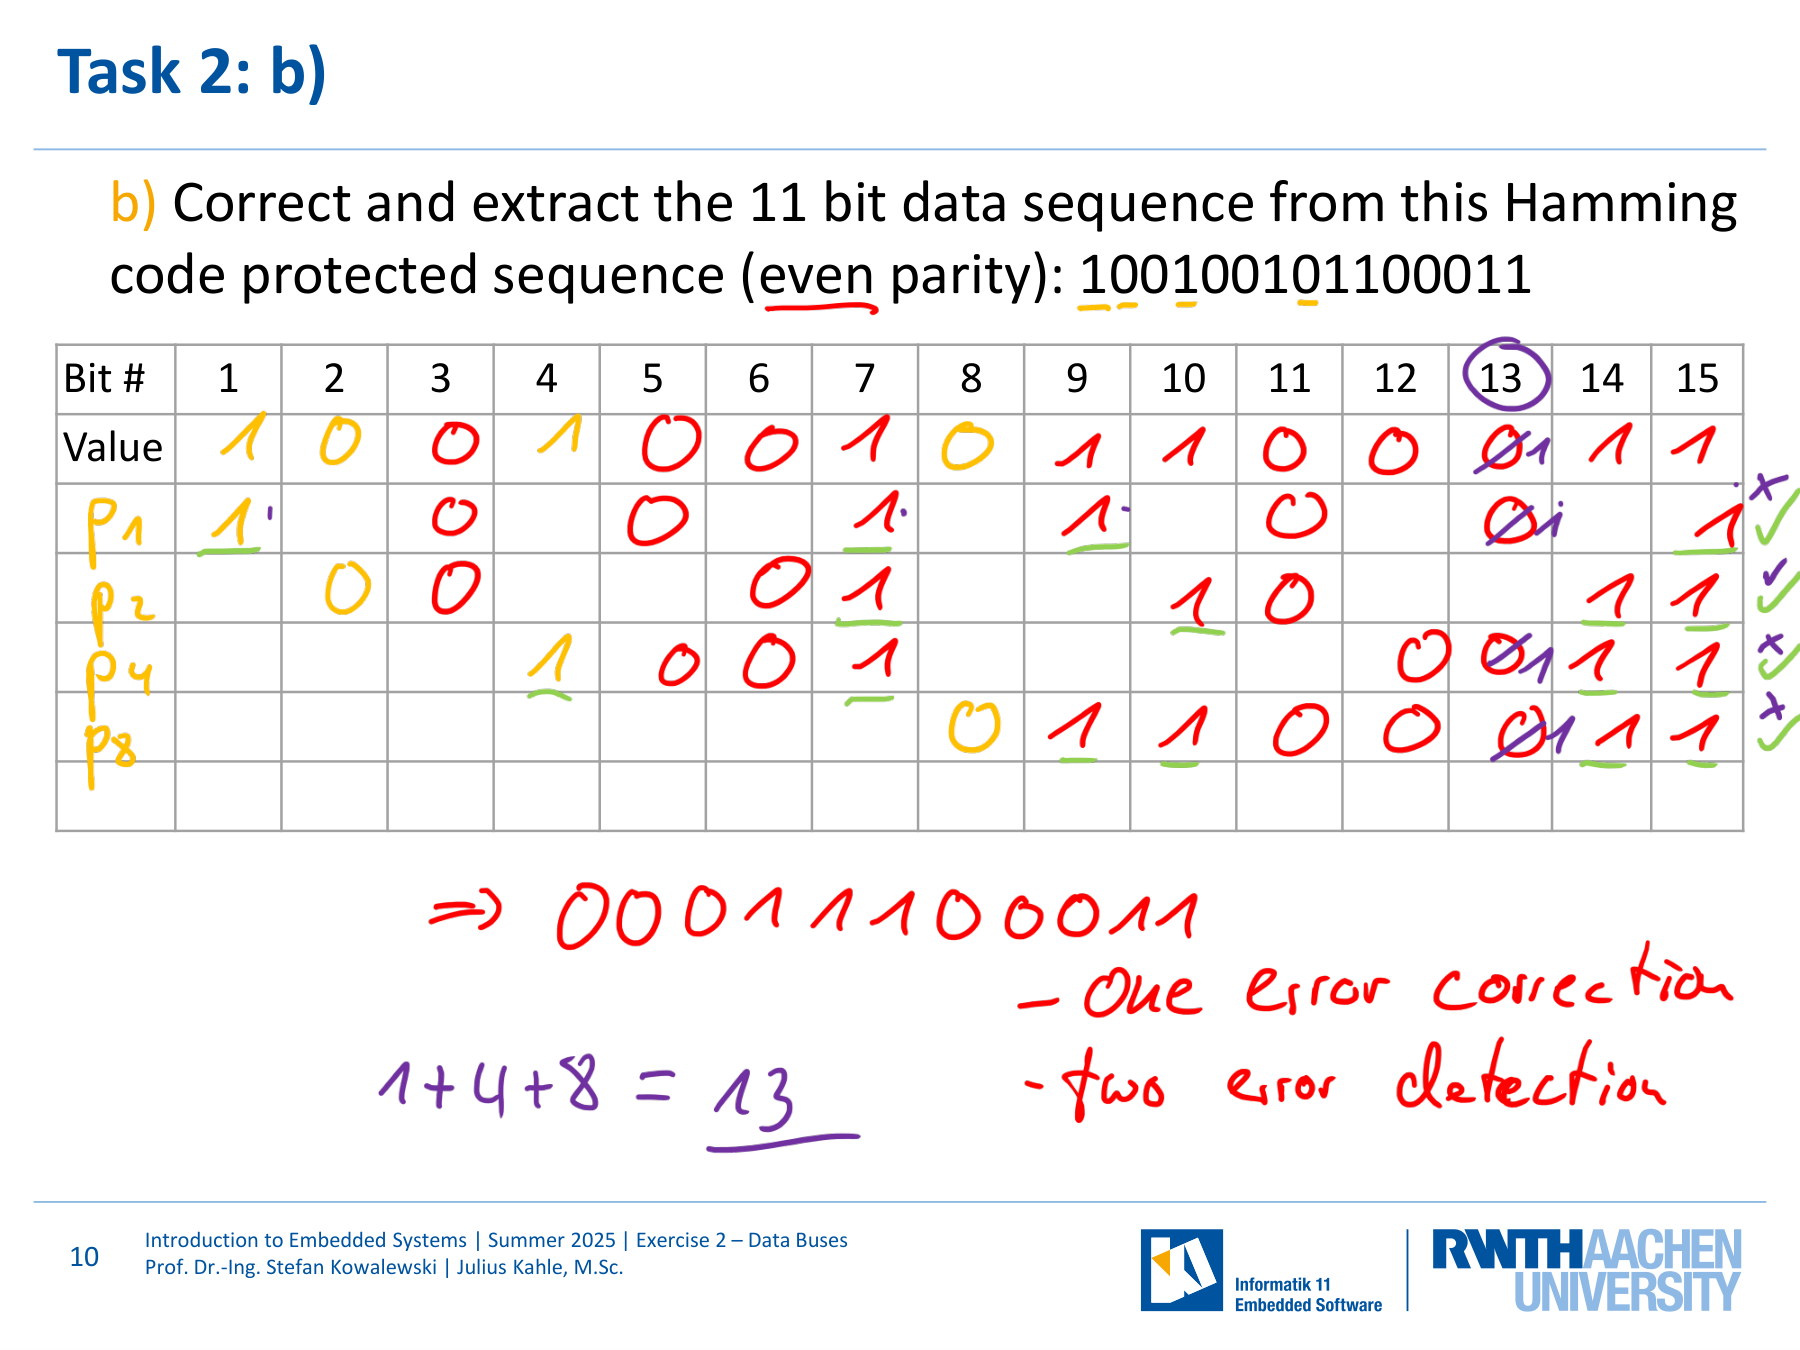 Task 2: b)
b) Correct and extract the 11 bit data sequence from this Hamming
code protected sequence (even parity): 100100101100011
Bit # 1 2 3 4 5 6 7 8 9 10 11 12 13 14 15
Value 1 0 0 1 0 0 1 0 1 1 0 0 0 1 1 1
p1 1 0 0 1 1 0 0 1 1 × ✓
p2 0 0 0 1 1 0 1 1 ✓ ✓
p4 1 0 0 1 0 0 1 1 1 × ✓
p8 0 1 1 0 0 0 1 1 1 × ✓
⇒ 00011100011
- One error correction
1+4+8 = 13
- two error detection
10
Introduction to Embedded Systems | Summer 2025 | Exercise 2 – Data Buses
Prof. Dr.-Ing. Stefan Kowalewski | Julius Kahle, M.Sc.
Informatik 11
Embedded Software
RWTHAACHEN
UNIVERSITY